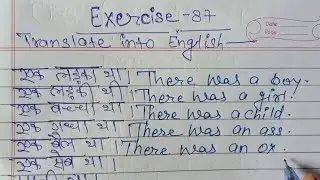 Exercise-87
Translate into English—
एक लड़का था। There was a boy.
एक लड़की थी। There was a girl.
एक बच्चा था। There was a child.
एक गधा था। There was an ass.
एक बैल था। There was an ox.
एक सेब था।